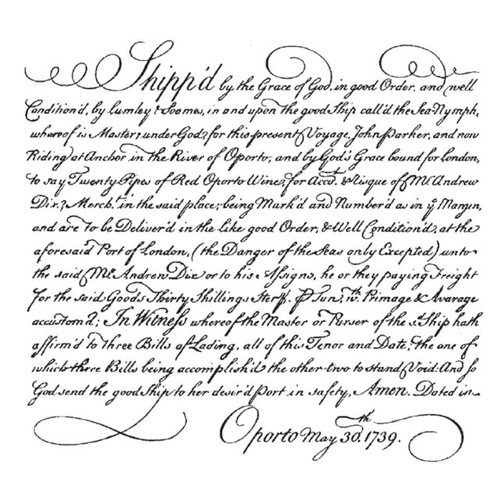 Shipp'd by the Grace of God, in good Order, and well
Condition'd, by Lumley & Soomes, in and upon the good Ship call'd the Sea-Nymph,
whereof is Master, under God, for this present Voyage, John Parker, and now
Riding at Anchor in the River of Oporto, and by God's Grace bound for London,
to say Twenty Pipes of Red Oporto Wine, for Acct. & Risque of Mr. Andrew
Dix, Merch.t in the said place; being Mark'd and Number'd as in ye Margin,
and are to be Deliver'd in the Like good Order, & Well Condition'd, at the
aforesaid Port of London, (the Danger of the Seas only Excepted) unto
the said Mr. Andrew Dix or to his Assigns, he or they paying Freight
for the said Goods Thirty Shillings Sterls. p Tun, wth. Primage & Avarage
accustom'd; In Witness whereof the Master or Purser of the sd. Ship hath
affirm'd to Three Bills of Lading, all of this Tenor and Date; the one of
which three Bills being accomplish'd the other two to stand Void: And so
God send the good Ship to her desir'd Port in safety, Amen. Dated in
Oporto May 30.th 1739.